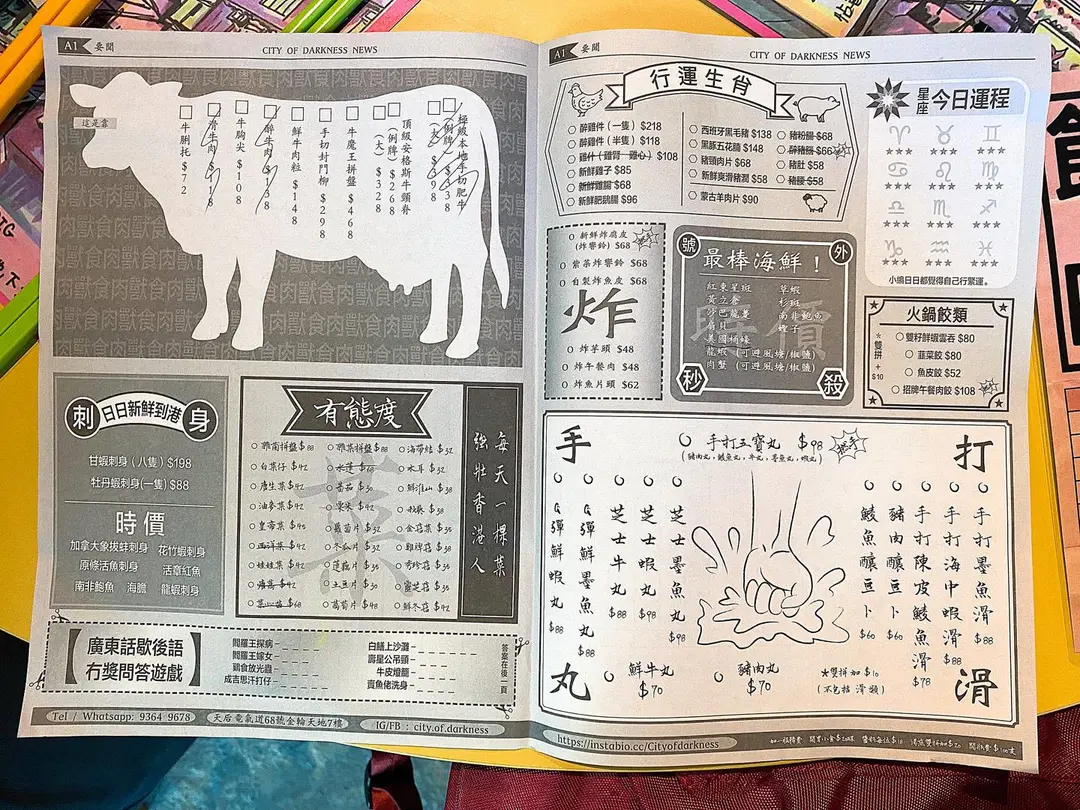 A1 要聞
CITY OF DARKNESS NEWS
這是靠
極級本地手切肥牛
(例牌) $238
(大) $398
頂級安格斯牛頸脊
(例牌) $168
(大) $328
牛魔王拼盤 $468
手切封門柳 $298
鮮牛肉粒 $148
醉牛肉 $118
牛胸尖 $108
滑牛肉 $98
牛脷托 $72
刺身
日日新鮮到港
甘蝦刺身(八隻) $198
牡丹蝦刺身(一隻) $88
時價
加拿大象拔蚌刺身 花竹蝦刺身
原條活魚刺身 活章紅魚
南非鮑魚 海膽 龍蝦刺身
有態度
菜
雜菌拼盤 $88
白菜仔 $42
唐生菜 $42
油麥菜 $42
皇帝菜 $45
西洋菜 $42
娃娃菜 $42
雜菜拼盤 $88
番茄 $30
粟米 $42
蘿蔔片 $32
冬瓜片 $32
蓮藕片 $35
土豆片 $30
萵筍片 $48
海帶結 $32
木耳 $32
鮮淮山 $38
秋葵 $38
金菇菜 $35
雞脾菇 $38
秀珍菇 $35
靈芝菇 $38
鮮冬菇 $42
每天一棵菜
強壯香港人
廣東話歇後語
冇獎問答遊戲
閻羅王探病
閻羅王嫁女
鷄食放光蟲
成吉思汗打仔
白鱔上沙灘
壽星公吊頸
牛皮燈籠
賣魚佬洗身
答案在後一頁
Tel / Whatsapp: 9364 9678
天后電氣道68號金輪天地7樓
IG/FB : city.of.darkness
A1 要聞
CITY OF DARKNESS NEWS
行運生肖
醉雞件(一隻) $218
醉雞件(半隻) $118
雞什(雞腎 雞心) $108
新鮮雞子 $85
新鮮雞腸 $68
新鮮肥鵝腸 $96
西班牙黑毛豬 $138
黑豚五花腩 $148
豬頸肉片 $68
新鮮爽滑豬潤 $58
蒙古羊肉片 $90
豬粉腸 $68
醉豬膶 $66
豬肚 $58
豬腰 $58
星座今日運程
小編日日都覺得自己行緊運。
新鮮炸腐皮
(炸響鈴) $68
紫菜炸響鈴 $68
自製炸魚皮 $68
炸
炸芋頭 $48
炸午餐肉 $48
炸魚片頭 $62
號外
最棒海鮮!
時價
紅東星斑 草蝦
黃立倉 杉斑
沙巴龍躉 南非鮑魚
扇貝 蟶子
美國桶蠔
龍蝦 (可避風塘/椒鹽)
肉蟹 (可避風塘/椒鹽)
秒殺
火鍋餃類
雙籽鮮蝦雲吞 $80
韮菜餃 $80
魚皮餃 $52
招牌午餐肉餃 $108
*雙拼+$10
手打丸滑
手打五寶丸 $98
(豬肉丸,鯪魚丸,牛丸,墨魚丸,蝦丸)
Q彈鮮蝦丸 $88
Q彈鮮墨魚丸 $88
芝士牛丸 $88
芝士蝦丸 $98
芝士墨魚丸 $88
鯪魚釀豆卜 $60
豬肉釀豆卜 $60
手打陳皮鯪魚滑 $78
手打海中蝦滑 $88
手打墨魚滑 $88
鮮牛丸 $70
豬肉丸 $70
*雙拼加$10
(不包括滑類)
https://instabio.cc/Cityofdarkness